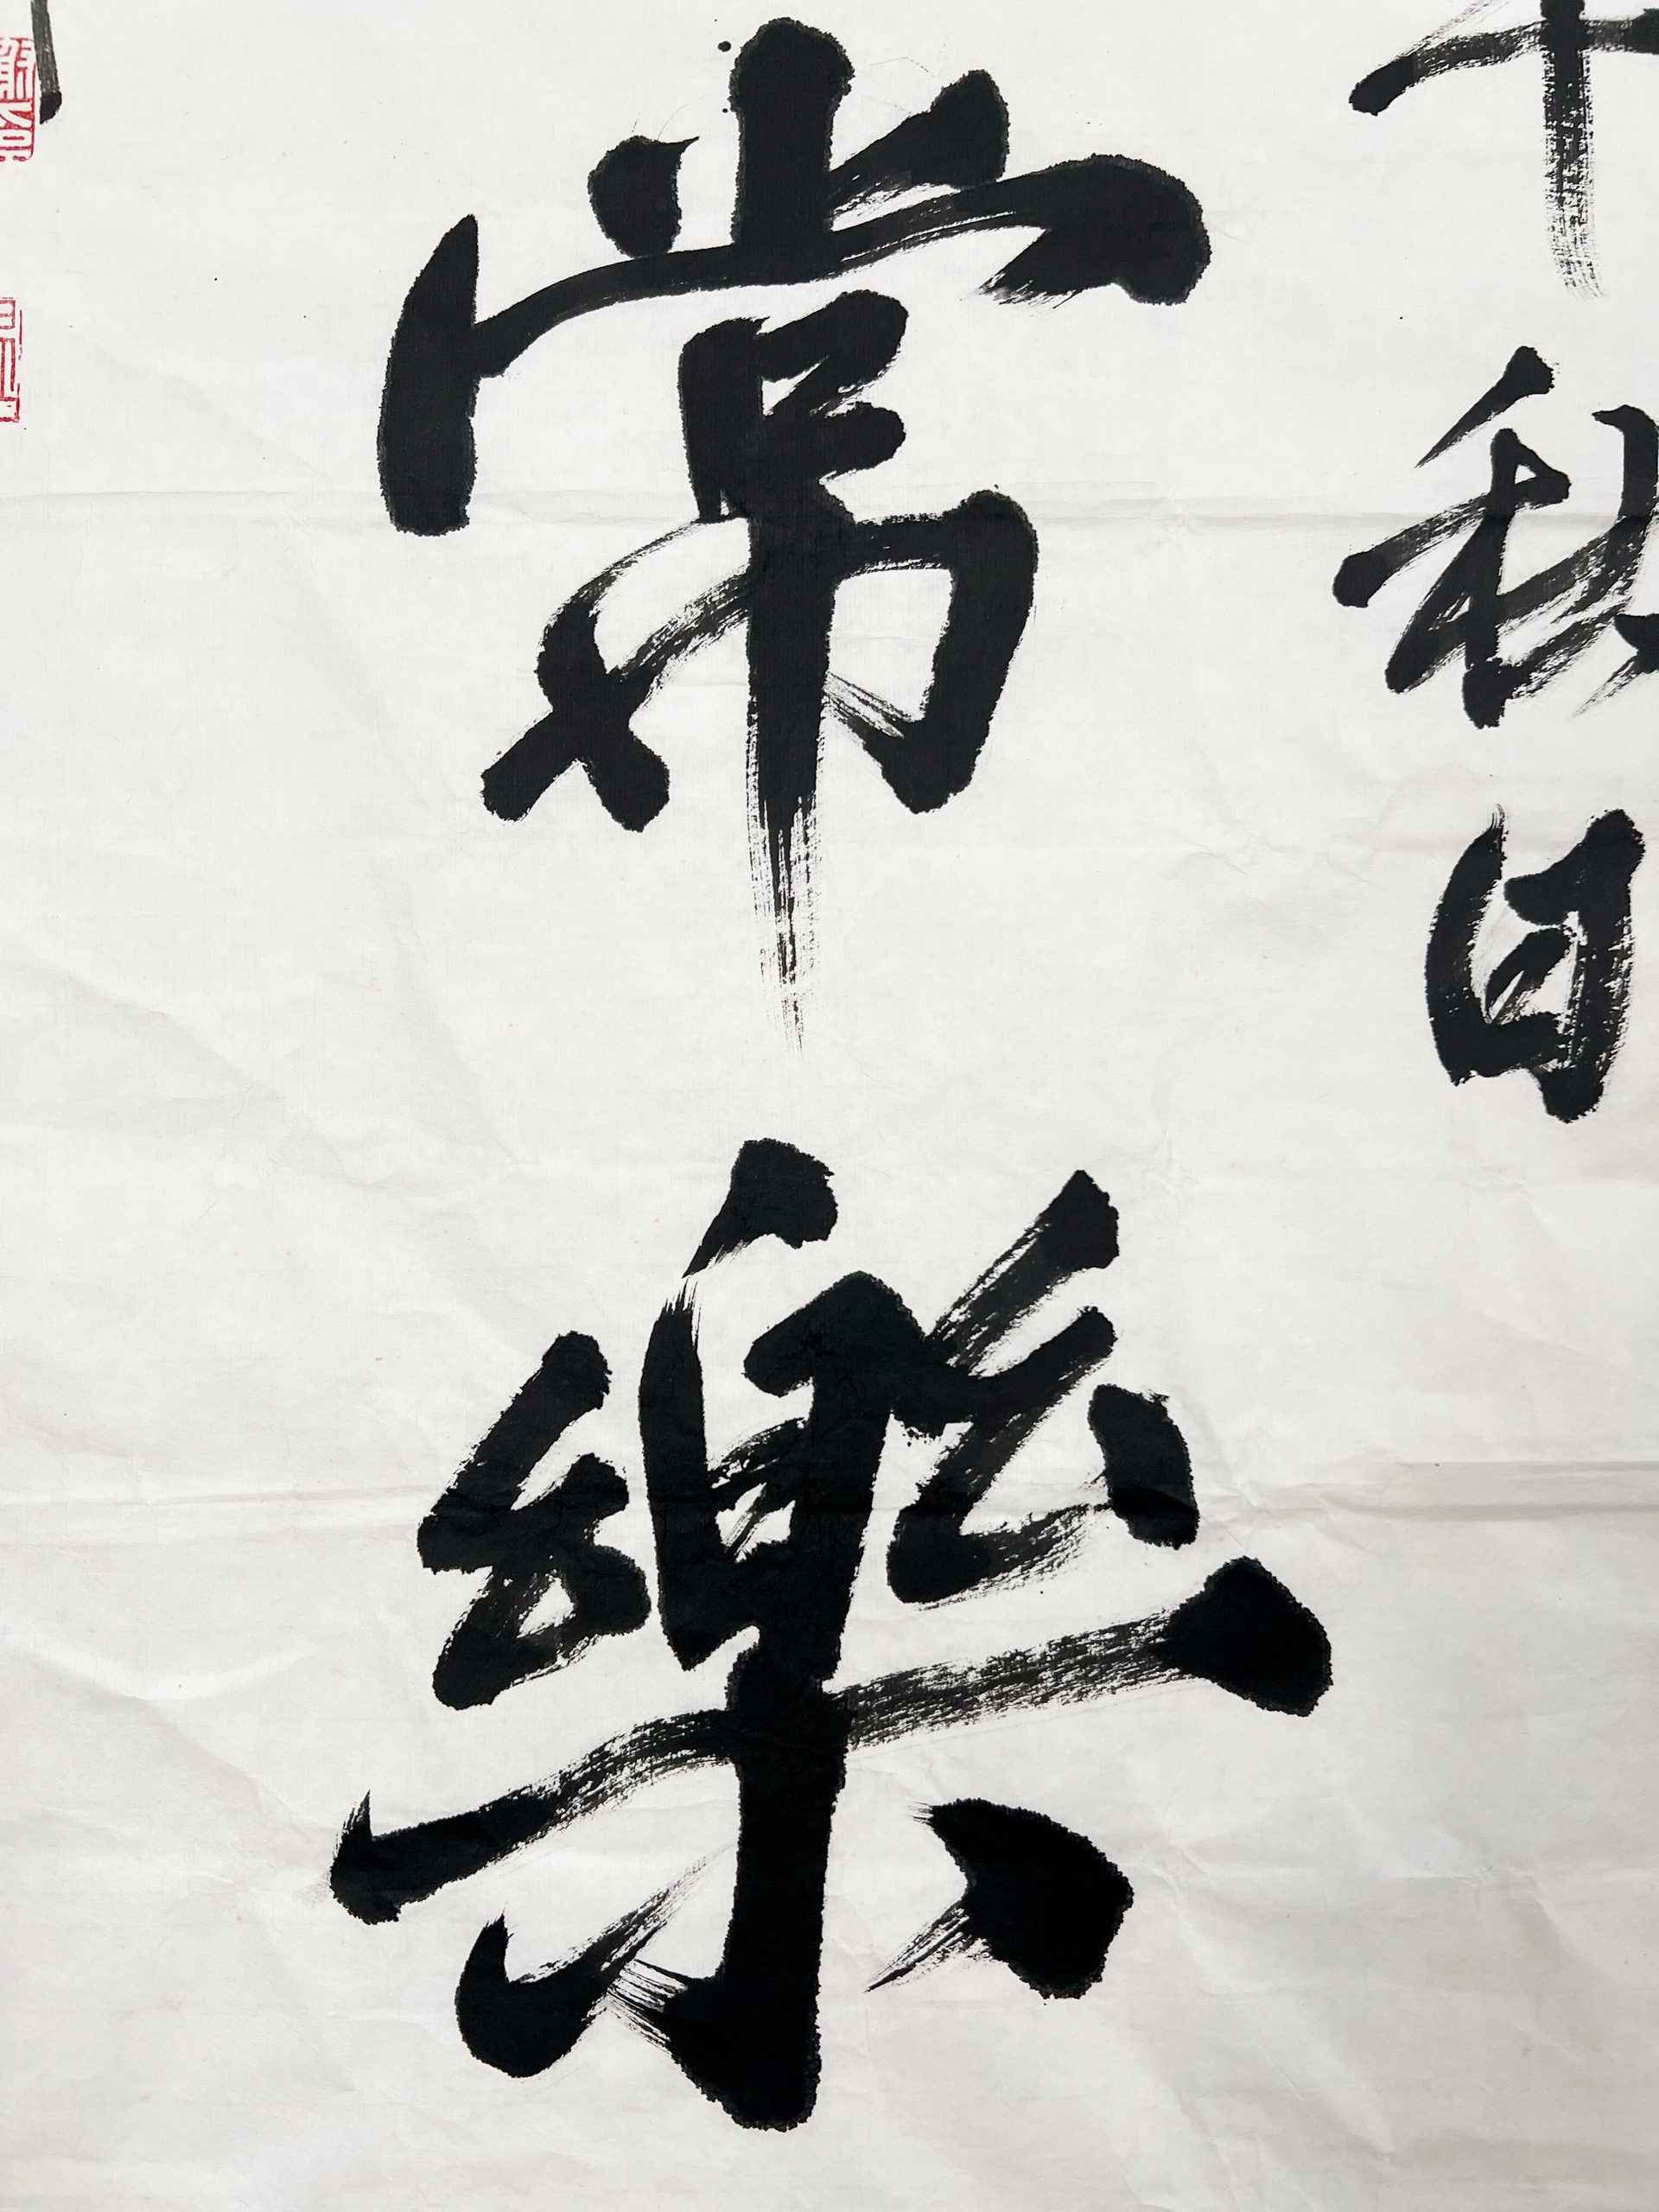 秋日
常樂